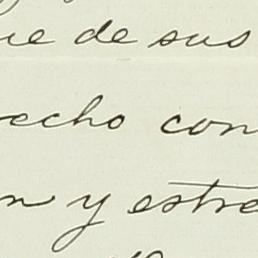 ue de sus
echo con
n y estre